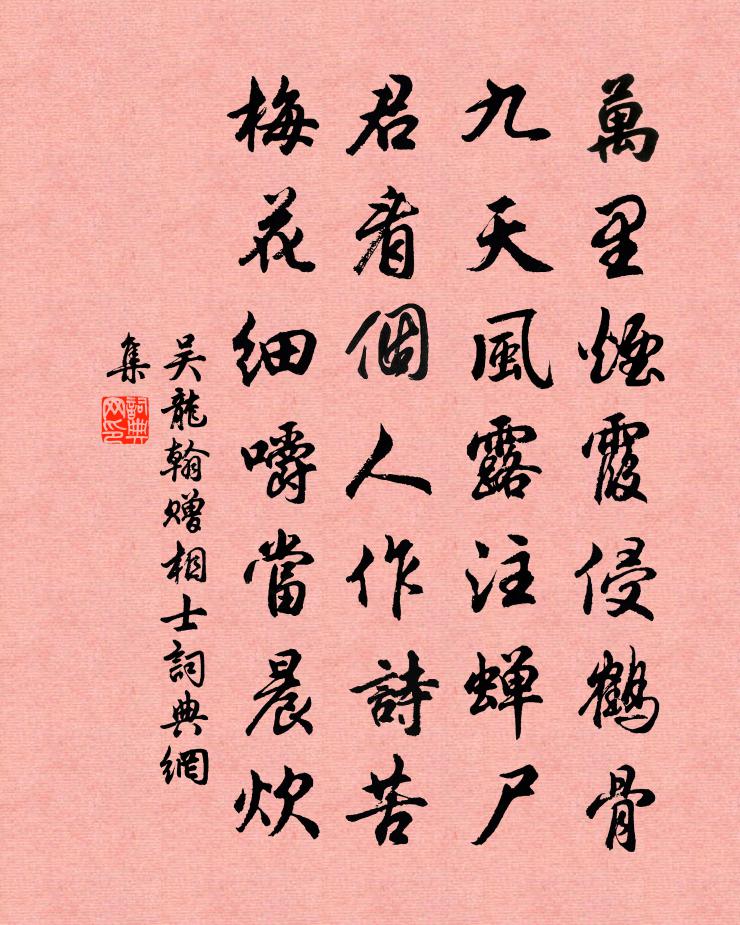 萬里煙霞侵鶴骨
九天風露注蟬尸
君看個人作詩苦
梅花細嚼當晨炊
吴龍翰赠相士詞典網
集
詞典
网印